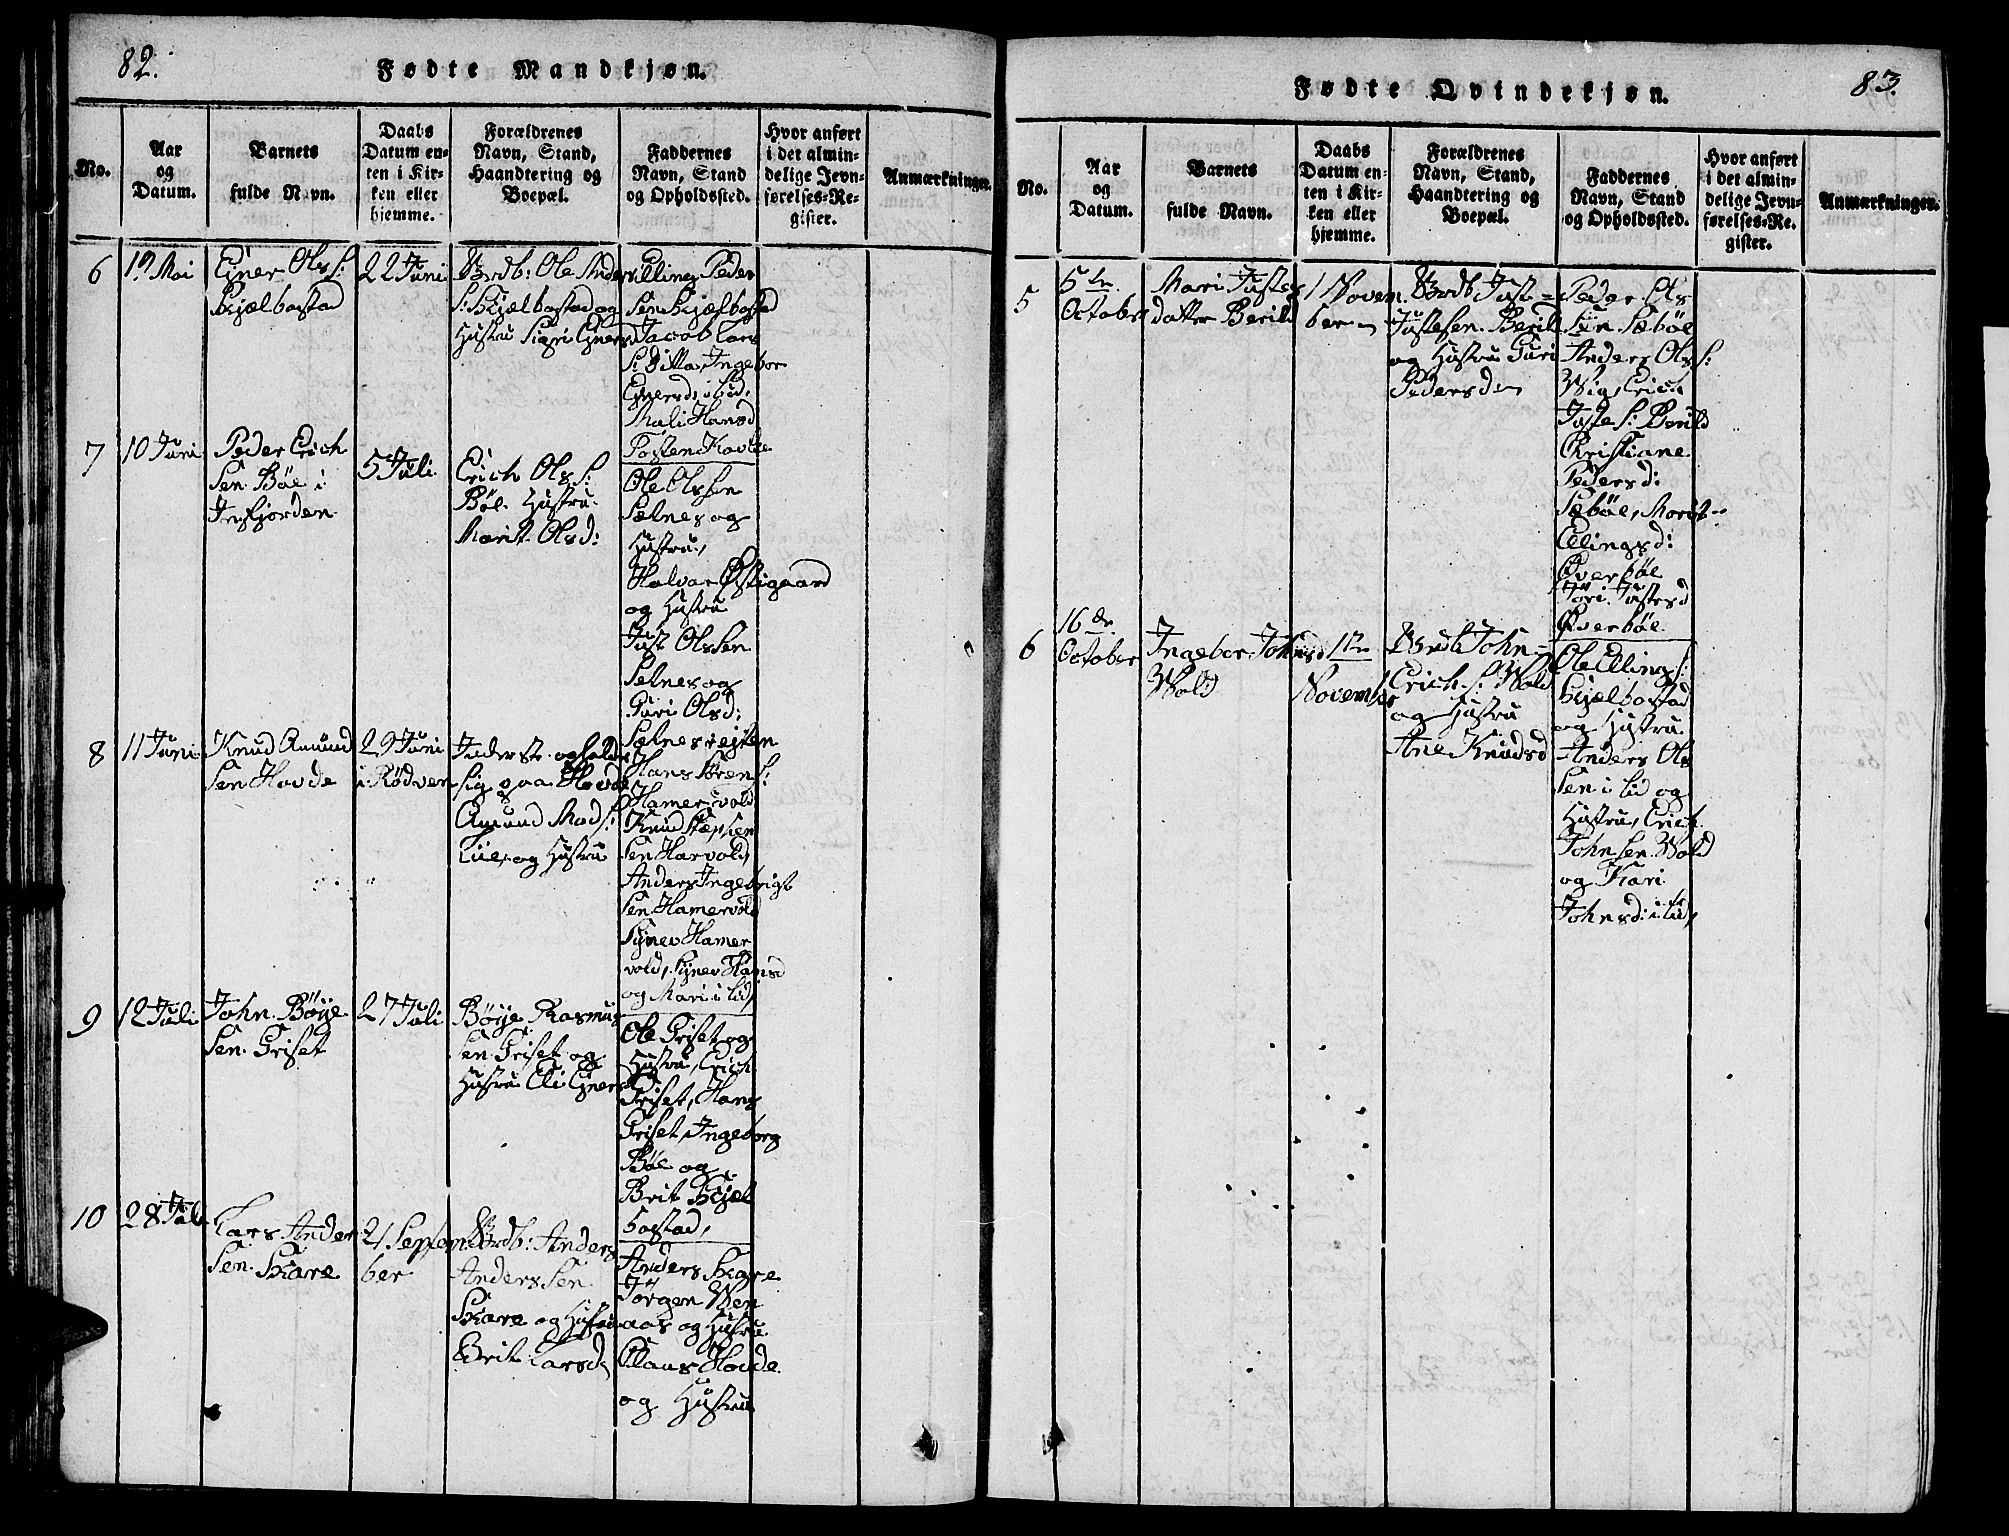 82.
Fødte Mandkjøn.
No.
Aar
og
Datum.
Barnets
fulde Navn.
Daabs
Datum en-
ten i Kir-
ken eller
hjemme.
Forældrenes
Navn, Stand,
Haandtering og
Boepæl.
Faddernes
Navn, Stand
og Opholdssted.
Hvor anført
i det almin-
delige Jevn-
førelses-Re-
gister.
Anmærkninger.
6
Mai
Ejner Ols S:
Skjælbostad
22 Juni
Brdb: Ole Anders
S: Skjelbostad og
Hustru Sigri Ejnersd
Elling Peder
Sen Skjelbostad
Jacob Lars
S: Ditto, Ingebor
Ejnersd: i Lid,
Mali Hansd
Tosten Hovde
7
10 Juni
Peder Erich
Sen Böe i
Insfjorden
5 Juli
Erich Ols S:
Böe Hustru
Marit Olsd:
Ole Olssen
Sælnes og
Hustru,
Halvor Østigaard
og Hustru
Just Olssen
Selnes og
Guri Olsd:
Sælnesvejten
8
11 Juni
Knud Amund
Sen Hovde
29 Juni
i Rødven
Inderst opholder
sig paa Hovde
Amund Mads:
Lie, og Hustru
Hans Sören S:
Hamervold
Knud
Sen Harvold,
Anders Ingebrigt
Sen Hamervold
Synev Hamer
vold, Synev Hansd
og Mari i Lid,
9
12 Juli
John Böye
Sen Griset
27 Juli
Böye Rasmus
Sen Griset og
Hustru Eli Ejnersd
Ole Griset og
Hustru, Erich
Griset, Hans
Griset, Ingeborg
Böe og
Brit Skjel
bostad,
10
28 Juli
Lars Ander
Sen Skare
21 Septem
ber
Brdb: Anders
Anders Sen
Skare og Hustru
Brit Larsd
Anders Skare
Jörgen Wen
aas og Hustru
Claus Hovde
og Hustru
83.
Fødte Qvindekjøn.
No.
Aar
og
Datum.
Barnets
fulde Navn.
Daabs
Datum en-
ten i Kir-
ken eller
hjemme.
Forældrenes
Navn, Stand,
Haandtering og
Boepæl.
Faddernes
Navn, Stand
og Opholdssted.
Hvor anført
i det almin-
delige Jevn-
førelses-Re-
gister.
Anmærkninger.
5
5te
October
Mari Justes
datter Berild
1 Novem
ber
Brdb Just
Justesen Berild
og Hustru Guri
Pedersd
Peder Ols
Sen Sæböe
Anders Ols S:
Wig, Erich
Juste S: Berild
Christiane
Pedersd:
Sæböe, Marit
Ellingsd:
Överböe
Jöri Justesd
Överböe
6
16de
October
Ingebor Johnsd
Wold
1te
November
Brdb John
Erich S: Wold
og Hustru
Ane Knudsd
Ole Elling S:
Skjælbostad
og Hustru
Anders Ols
Sen i Lid og
Hustru, Erich
Johnsen Wold
og Kari
Johnsd: i Lid,